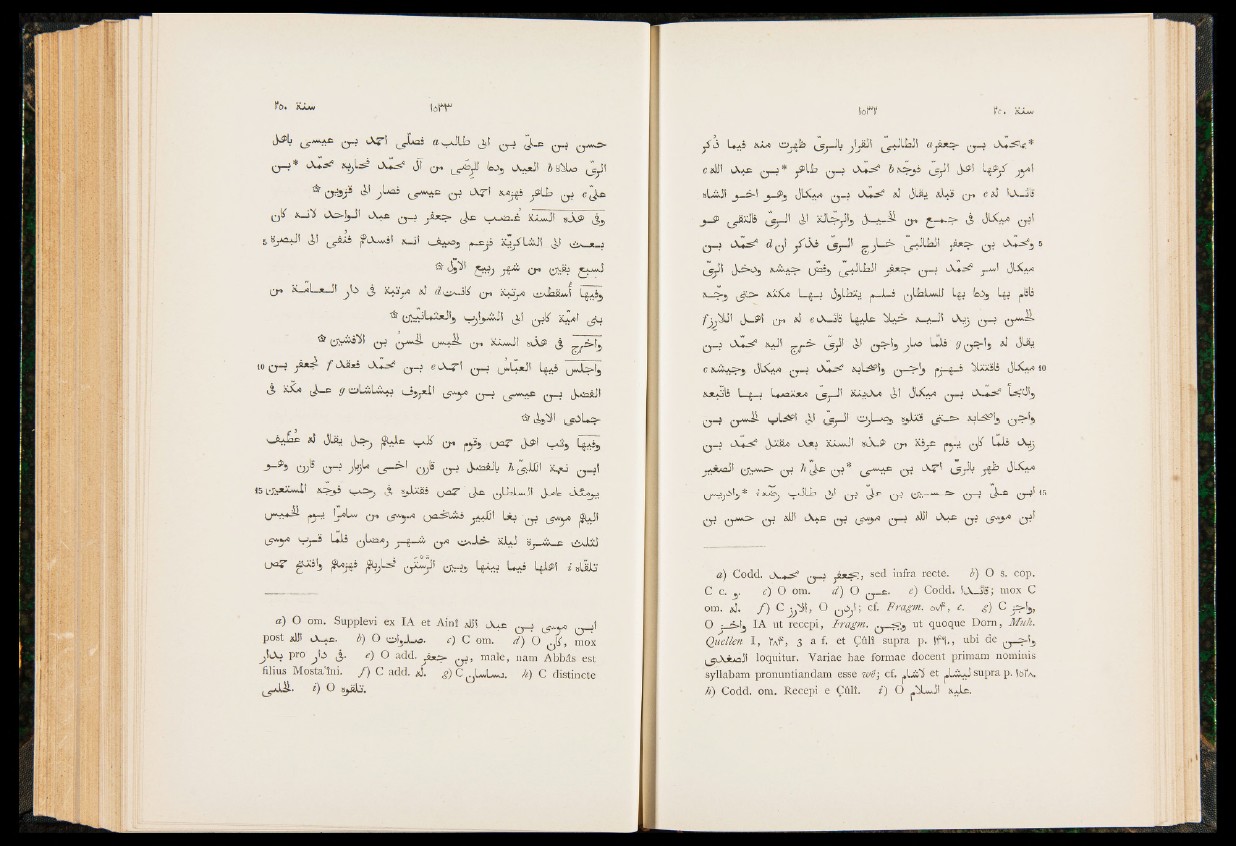 ١٥٣٢ سنة ٢٥٠
*بمحمّد بن جعفر a الطالبىّ الفرار بالرىّ ظهرت منه فيما ذُكر
امور كرهها اهل الرىّ فوجّه b محمّد بن طاهر *بن عبد الله c
قائدًا له c من قبله يقال له محمّد بن ميكال وهو اخو الشاه
ابن ميكال فى جمع من الخيل والرجّالة الى الرىّ فالتقى هو
5 ومحمّد بن جعفر الطالبىّ خارج الرىّ فذكر ان d محمّد بن
ميكال اسر محمّد بن جعفر الطالبىّ وفضّ جيشه ودخل الرىّ
فاقام بها ودعا بها للسلطان فلم يتطاول بها مكثه حتى وجّه
الحسن بن زيد اليه خيلا عليها قائد e له من اهل اللارز f
يقال له واجن g فلمّا صار واجن الى الرىّ خرج اليه محمّد بن
10 ميكال فاقتتلا فهزم واجن واصحابه محمّد بن ميكال وجيشه c
والتجأ محمّد بن ميكال الى مدينة الرىّ معتصما بها فاتّبعه
واجن واصحابه حتى قتلوه وصارت الرىّ الى اصحاب الحسن بن
زيد فلمّا كان يوم عرفة من هذه السنة بعد مقتل محمّد بن
ميكال ظهر بالرىّ احمد بن عيسى *بن علىّ h بن حسين الصغير
15 ابن علىّ بن حسين بن علىّ بن ابى طالب رضّه i *وادريس
ابن موسى بن عبد الله بن موسى بن عبد الله بن حسن بن
a) Codd. بجعفر بن محمد, sed infra recte. b) O s. cop.
C c. و. c) O om. d) O عن. e) Codd. قائدا; mox C
om. له. f) C الارز, O ; cf. Fragm. ٥٧٤, c. g) C
O IA ut recepi, Fragm. ut quoque Dorn, Muh.
Quellen I, ٢٨٣, 3 a f. et Çûlî supra p. ١٣٩٠, ubi de واجن
الصغدى loquitur. Variae hae formae docent primam nominis
syllabam pronuntiandam esse wê; cf. et supra p. ١٥٢٨.
h) Codd. om. Recepi e Çûlî. i) O عليه السلام.
سنة ٢٥٠ ١٥٣٣
حسن بن علىّ بن ابى طالب a فصلّى احمد بن عيسى باهل
الرىّ صلاة b العيد ودعا للرضى من آل محمد فحاربه محمد *بن
علىّ c بن طاهر فهزمه احمد بن عيسى فصار الى قزوين ☆
وفى هذه السنة غضب على جعفر بن عبد الواحد لانه كان
5 بعث الى الشاكريّة فزعم وصيف انه افسدهم فنُفى الى البصرة
لسبع بقين من شهر ربيع الاوّل ☆
وفيها أسقطت مرتبة من كانت d له مرتبة فى دار العامّة من
بنى اميّة كابن ابى الشوارب والعثمانيّين ☆
واخرج فى هذه السنة من الحبس الحسن بن الافشين ☆
10 واجلس فيها العبّاس بن احمد e بن محمد فعقد f لجعفر بن
الفضل بن عيسى بن موسى المعروف ببشاشات g على مكّة فى
جمادى الاولى ☆
وفيها وثب اهل حمص وقوم من كلب عليهم رجل يقال له عُطيف
ابن نعمة الكلبىّ h بالفضل بن قارن اخى مازيار بن قارن وهو
15 يومئذ عامل السلطان على حمص فقتلوه فى رجب فوجّه المستعين
اليهم موسى بن بغا الكبير فشخص موسى من سامرّا يوم الخميس
لثلث عشرة ليلة خلت من شهر رمضان فلمّا قرب موسى
تلقاه i اهلها فيما بينها وبين الرَّسْتَن فحاربهم فهزمهم وافتتح حمص
a) O om. Supplevi ex IA et Ainî ابن موسى بن عبد الله
post عبد الله. b) O صلوات. c) C om. d) O كان, mox
بدار pro فى دار. e) O add. بن جعفر, male, nam Abbâs est
filius Mosta'îni. f) C add. له. g) C h) C distincte
i) O تلقوه.